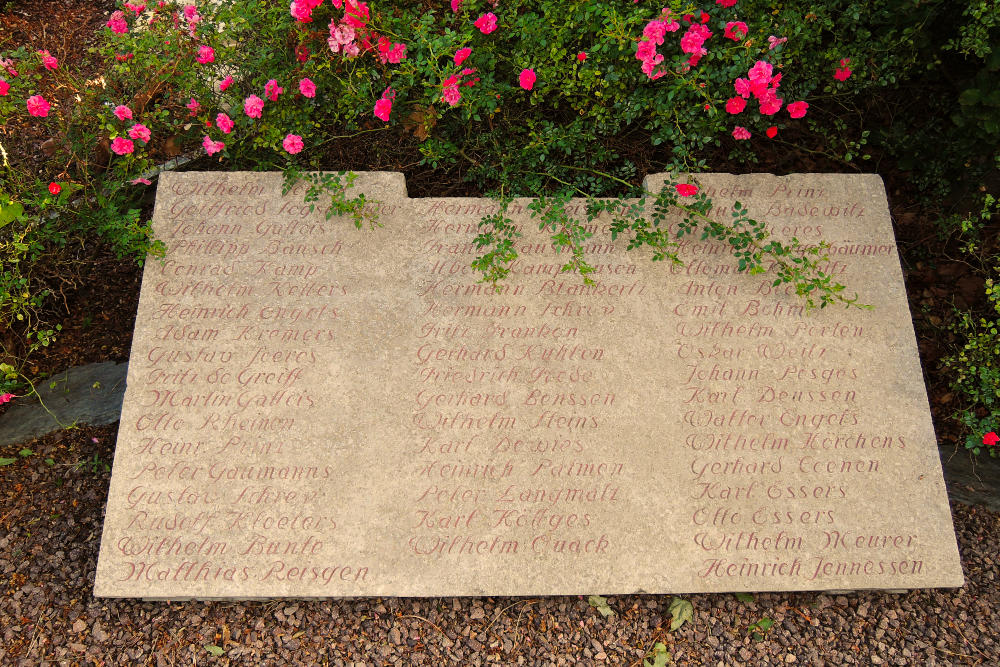 Wilhelm
Gottfried
Johann Gatters
Philipp Bausch
Conrad Kamp
Wilhelm Kellers
Heinrich Engels
Adam Kremers
Gustav Heeres
Fritz de Greiff
Martin Galleis
Otto Rheinen
Heinr. Prinz
Peter Gaumanns
Gustav Schrew
Rudolf Kloeters
Wilhelm Bunte
Matthias Reisgen
Hermann
Hermann
Franz Baumann
Kamphausen
Hermann Blankertz
Hermann Schrew
Fritz Franken
Gerhard Kühlen
Friedrich Rode
Gerhard Benssen
Wilhelm Heins
Karl Dewies
Heinrich Palmen
Peter Langmatz
Karl Höttges
Wilhelm Quack
Wilhelm Prinz
Badewitz
Heeres
Heinr. bäumer
Anton
Emil Böhm
Wilhelm Perlen
Oskar Weitz
Johann Pesges
Karl Deussen
Walter Engels
Wilhelm Hörchens
Gerhard Coenen
Karl Essers
Otto Essers
Wilhelm Meurer
Heinrich Jennessen